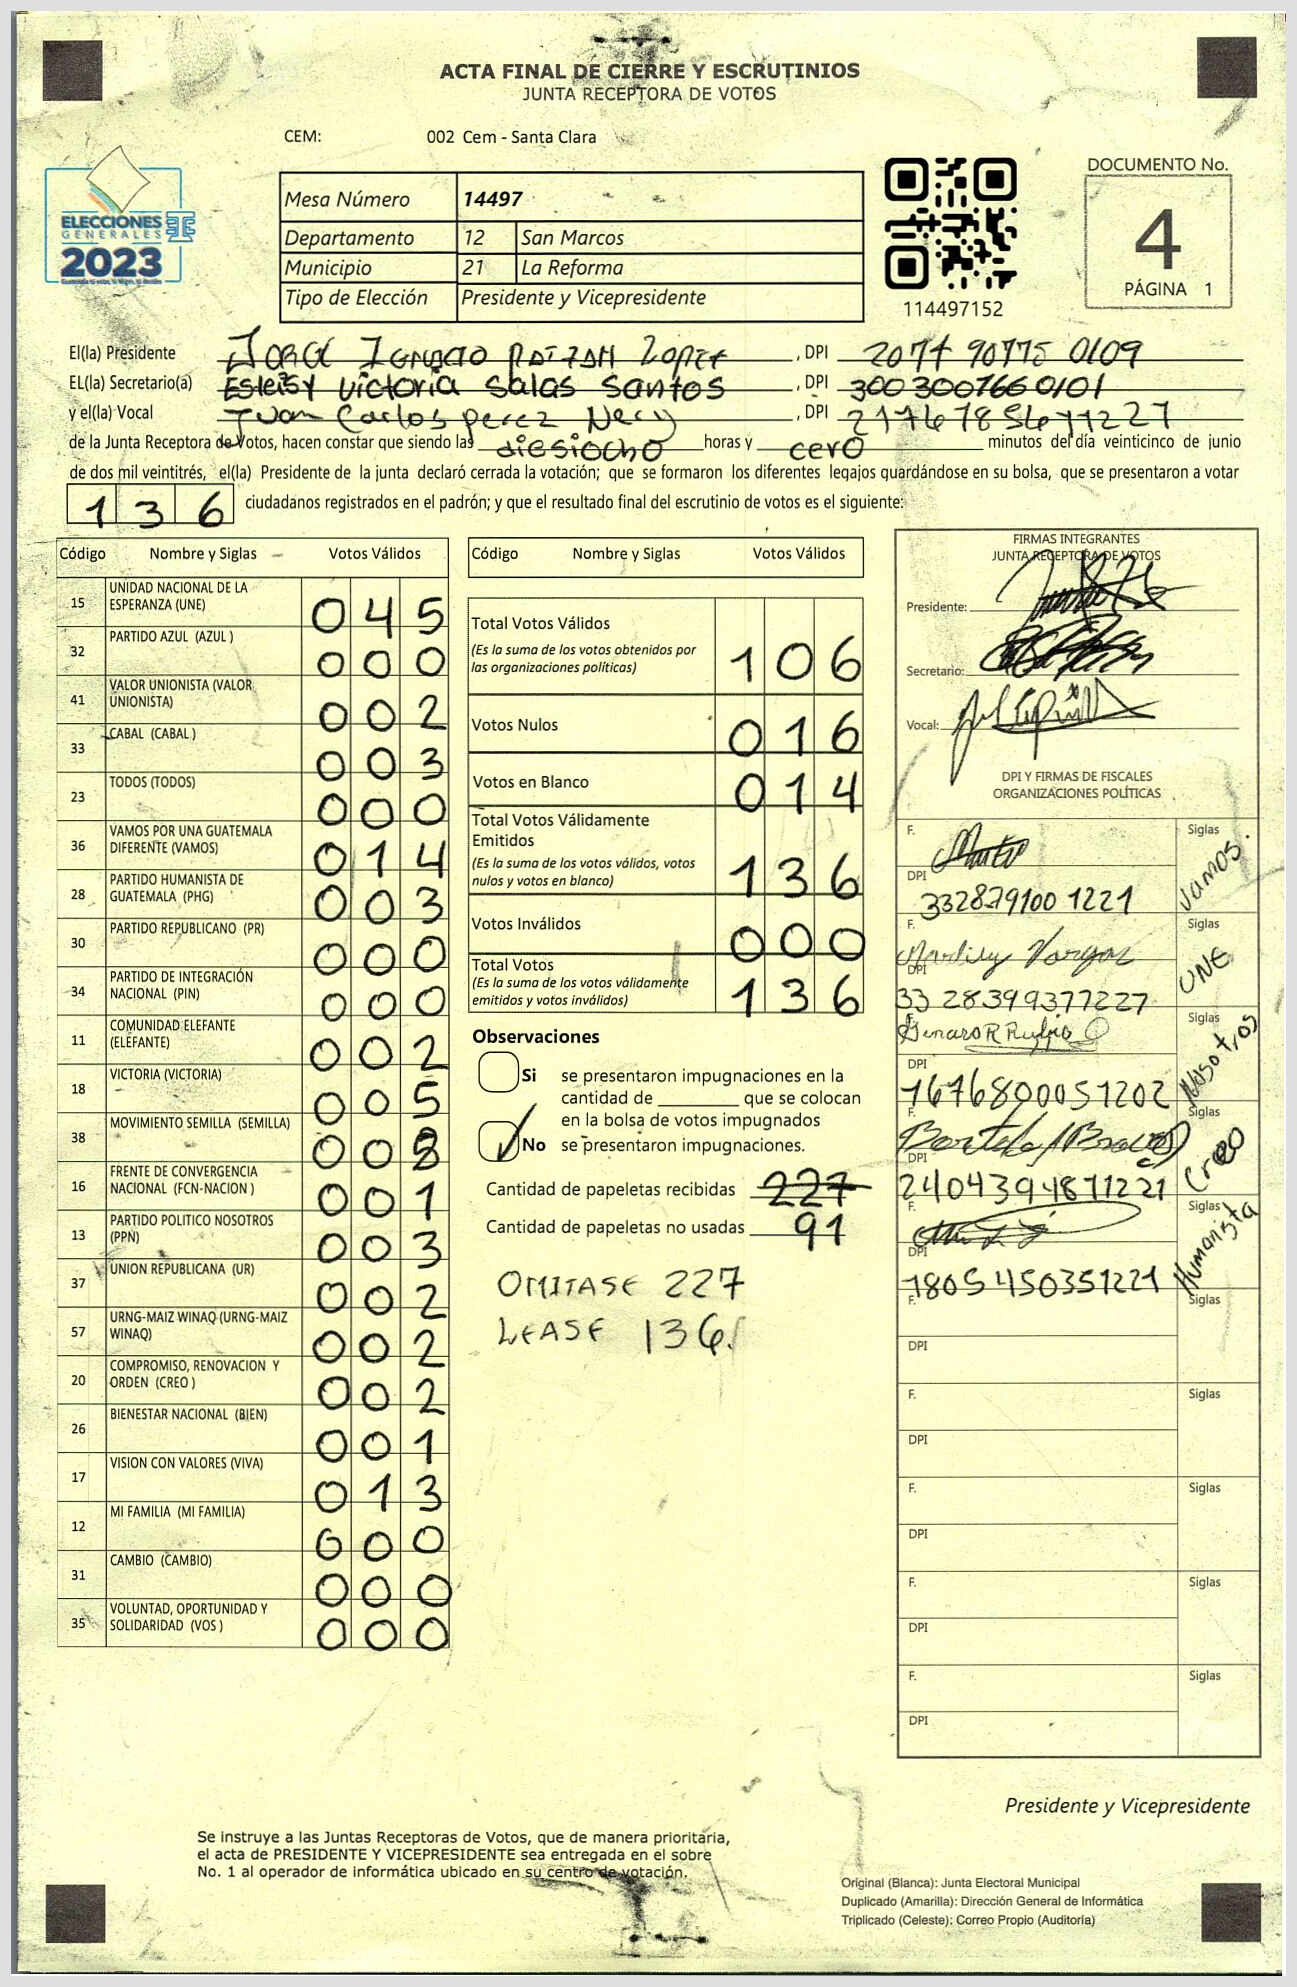 ACTA FINAL DE CIERRE Y ESCRUTINIOS
JUNTA RECEPTORA DE VOTOS
CEM: 002 Cem - Santa Clara
ELECCIONES
GENERALES
2023
Mesa Número 14497
Departamento 12 San Marcos
Municipio 21 La Reforma
Tipo de Elección Presidente y Vicepresidente
114497152
DOCUMENTO No.
4
PÁGINA 1
El(la) Presidente Jorge Ignacio López , DPI 2077 90775 0109
EL(la) Secretario(a) Victoria Salas Santos , DPI 300 3007660101
y el(la) Vocal Juan Carlos perez Nery , DPI
de la Junta Receptora de Votos, hacen constar que siendo las diesiocho horas y cero minutos del día veinticinco de junio
de dos mil veintitrés, el(la) Presidente de la junta declaró cerrada la votación; que se formaron los diferentes legajos guardándose en su bolsa, que se presentaron a votar
136 ciudadanos registrados en el padrón; y que el resultado final del escrutinio de votos es el siguiente:
Código Nombre y Siglas Votos Válidos
15 UNIDAD NACIONAL DE LA ESPERANZA (UNE) 045
32 PARTIDO AZUL (AZUL ) 000
41 VALOR UNIONISTA (VALOR UNIONISTA) 002
33 CABAL (CABAL ) 003
23 TODOS (TODOS) 000
36 VAMOS POR UNA GUATEMALA DIFERENTE (VAMOS) 014
28 PARTIDO HUMANISTA DE GUATEMALA (PHG) 003
30 PARTIDO REPUBLICANO (PR) 000
34 PARTIDO DE INTEGRACIÓN NACIONAL (PIN) 000
11 COMUNIDAD ELEFANTE (ELEFANTE) 002
18 VICTORIA (VICTORIA) 005
38 MOVIMIENTO SEMILLA (SEMILLA) 008
16 FRENTE DE CONVERGENCIA NACIONAL (FCN-NACION ) 001
13 PARTIDO POLITICO NOSOTROS (PPN) 003
37 UNION REPUBLICANA (UR) 002
57 URNG-MAIZ WINAQ (URNG-MAIZ WINAQ) 002
20 COMPROMISO, RENOVACION Y ORDEN (CREO ) 002
26 BIENESTAR NACIONAL (BIEN) 001
17 VISION CON VALORES (VIVA) 013
12 MI FAMILIA (MI FAMILIA) 000
31 CAMBIO (CAMBIO) 000
35 VOLUNTAD, OPORTUNIDAD Y SOLIDARIDAD (VOS ) 000
Código Nombre y Siglas Votos Válidos
Total Votos Válidos 106
(Es la suma de los votos obtenidos por
las organizaciones políticas)
Votos Nulos 016
Votos en Blanco 014
Total Votos Válidamente
Emitidos 136
(Es la suma de los votos válidos, votos
nulos y votos en blanco)
Votos Inválidos 000
Total Votos 136
(Es la suma de los votos válidamente
emitidos y votos inválidos)
Observaciones
Si se presentaron impugnaciones en la
cantidad de ________ que se colocan
en la bolsa de votos impugnados
No se presentaron impugnaciones.
Cantidad de papeletas recibidas 227
Cantidad de papeletas no usadas 91
OMITASE 227
LEASE 136.
FIRMAS INTEGRANTES
JUNTA RECEPTORA DE VOTOS
Presidente:
Secretario:
Vocal:
DPI Y FIRMAS DE FISCALES
ORGANIZACIONES POLÍTICAS
F. Siglas Vamos.
DPI 332879100 1221
F. Vargas Siglas UNE
DPI 33 28399377227
F. Genaro R Rubio O Siglas Nosotros
DPI 1676800051202
F. Siglas Creo
DPI 2404394871221
F. Siglas Humanista
DPI 1805450351221
F. Siglas
DPI
F. Siglas
DPI
F. Siglas
DPI
F. Siglas
DPI
F. Siglas
DPI
Presidente y Vicepresidente
Se instruye a las Juntas Receptoras de Votos, que de manera prioritaria,
el acta de PRESIDENTE Y VICEPRESIDENTE sea entregada en el sobre
No. 1 al operador de informática ubicado en su centro de votación.
Original (Blanca): Junta Electoral Municipal
Duplicado (Amarilla): Dirección General de Informática
Triplicado (Celeste): Correo Propio (Auditoría)